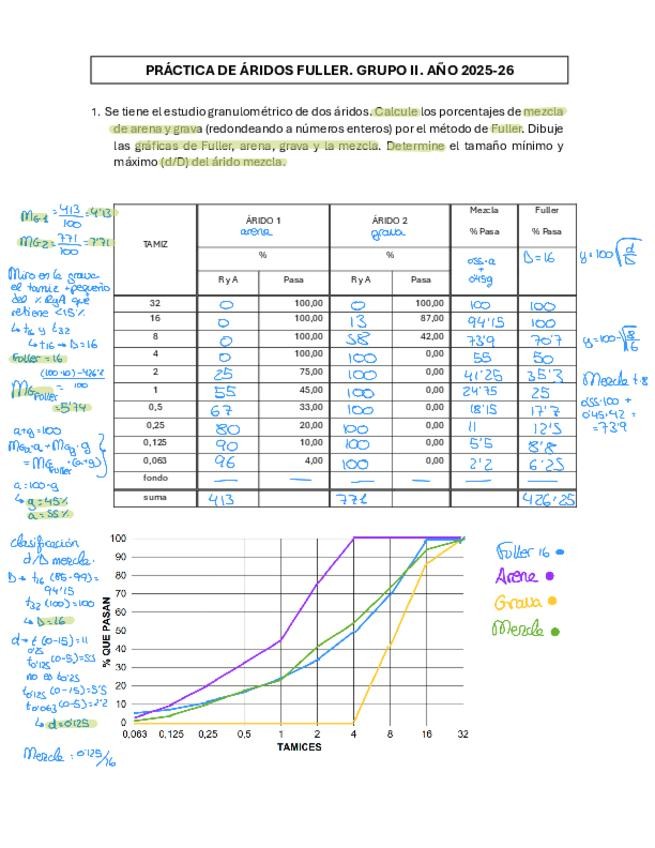 PRÁCTICA DE ÁRIDOS FULLER. GRUPO II. AÑO 2025-26
1. Se tiene el estudio granulométrico de dos áridos. Calcule los porcentajes de mezcla
de arena y grava (redondeando a números enteros) por el método de Fuller. Dibuje
las gráficas de Fuller, arena, grava y la mezcla. Determine el tamaño mínimo y
máximo (d/D) del árido mezcla.
MG1 = 413/100 = 4'13
MG2 = 771/100 = 7'71
Miro en la grava
el tamiz + pequeño
del % RyA que
retiene <15%
↳ t16 y t32
↳ t16 → D=16
Fuller = 16
MG Fuller = (100·10) - 426'2 / 100
= 5'74
a+g = 100
MG1·a + MG2·g
= MG Fuller ·(a+g)
a = 100-g
↳ g = 45%
a = 55%
TAMIZ ÁRIDO 1 ÁRIDO 2 Mezcla Fuller
arena grava % Pasa % Pasa
% % 0'55·a + 0'45g D=16
R y A Pasa R y A Pasa
32 0 100,00 0 100,00 100 100
16 0 100,00 13 87,00 94'15 100
8 0 100,00 58 42,00 73'9 70'7
4 0 100,00 100 0,00 55 50
2 25 75,00 100 0,00 41'25 35'3
1 55 45,00 100 0,00 24'75 25
0,5 67 33,00 100 0,00 18'15 17'7
0,25 80 20,00 100 0,00 11 12'5
0,125 90 10,00 100 0,00 5'5 8'8
0,063 96 4,00 100 0,00 2'2 6'25
fondo — — — — — —
suma 413 771 426'25
y = 100 √d/D
y = 100·√8/16
Mezcla t.8
0'55·100 +
0'45·42 =
= 73'9
clasificación
d/D mezcla.
D → t16 (85-99) =
94'15
t32 (100) = 100
↳ D=16
d → t0'25 (0-15) = 11
t0'125 (0-5) = 5'5
no es t0'25
t0'125 (0-15) = 5'5
t0'063 (0-5) = 2'2
↳ d = 0'125
Mezcla = 0'125/16
% QUE PASAN
100
90
80
70
60
50
40
30
20
10
0
0,063 0,125 0,25 0,5 1 2 4 8 16 32
TAMICES
Fuller 16
Arena
Grava
Mezcla